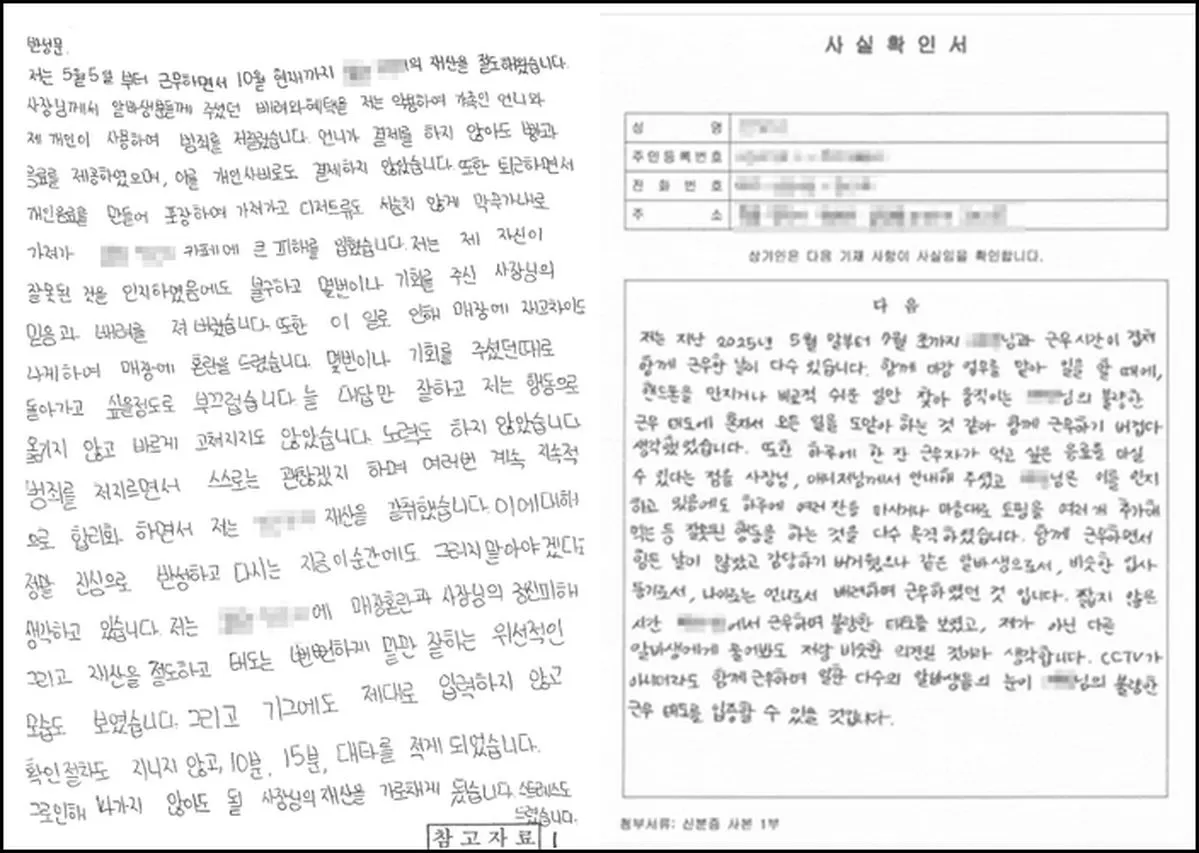 반성문.
저는 5월5일 부터 근무하면서 10월 현재까지 의 재산을 절도해왔습니다.
사장님께서 알바생분들께 주셨던 배려와 혜택을 저는 악용하여 가족인 언니와
제 개인이 사용하여 범죄를 저질렀습니다. 언니가 결제를 하지 않아도 빵과
음료를 제공하였으며, 이를 개인사비로도 결제하지 않았습니다. 또한 퇴근하면서
개인음료를 만들어 포장하여 가져가고 디저트류도 서슴치 않게 막무가내로
가져가 카페에 큰 피해를 입혔습니다. 저는 제 자신이
잘못된 것을 인지하였음에도 불구하고 몇번이나 기회를 주신 사장님의
믿음과 배려를 져 버렸습니다. 또한 이 일로 인해 매장에 재고차이도
나게하여 매장에 혼란을 드렸습니다. 몇번이나 기회를 주셨던때로
돌아가고 싶을정도로 부끄럽습니다. 늘 대답만 잘하고 저는 행동으로
옮기지 않고 바르게 고쳐지지도 않았습니다. 노력도 하지 않았습니다.
범죄를 저지르면서 스스로는 괜찮겠지 하며 여러번 계속 지속적
으로 합리화 하면서 저는 재산을 갈취했습니다. 이에대해
정말 진심으로 반성하고 다시는 지금 이순간에도 그러지말아야겠다고
생각하고 있습니다. 저는 에 매장혼란과 사장님의 정신피해
그리고 재산을 절도하고 태도는 뻔뻔하게 말만 잘하는 위선적인
모습도 보였습니다. 그리고 기그에도 제대로 입력하지 않고
확인절차도 지니지 않고, 10분, 15분, 대타를 적게 되었습니다.
그로인해 나가지 않아도 될 사장님의 재산을 가로채게 됬습니다. 스트레스도
드렸습니다.
참고자료 1
사실확인서
성 명
주민등록번호
전 화 번 호
주 소
상기인은 다음 기재 사항이 사실임을 확인합니다.
다 음
저는 지난 2025년 5월 말부터 9월 초까지 님과 근무시간이 겹쳐
함께 근무한 날이 다수 있습니다. 함께 마감 업무를 맡아 일을 할 때에,
핸드폰을 만지거나 비교적 쉬운 일만 찾아 움직이는 님의 불량한
근무 태도에 혼자서 모든 일을 도맡아 하는 것 같아 함께 근무하기 버겁다
생각했었습니다. 또한 하루에 한 잔 근무자가 먹고 싶은 음료를 마실
수 있다는 점을 사장님, 매니저님께서 안내해 주셨고 님은 이를 인지
하고 있음에도 하루에 여러 잔을 마시거나 마음대로 토핑을 여러 개 추가해
먹는 등 잘못된 행동을 하는 것을 다수 목격하였습니다. 함께 근무하면서
힘든 날이 많았고 감당하기 버거웠으나 같은 알바생으로서, 비슷한 입사
동기로서, 나이로는 언니로서 배려하며 근무하였던 것 입니다. 짧지 않은
시간 에서 근무하며 불량한 태도를 보였고, 제가 아닌 다른
알바생에게 물어봐도 저랑 비슷한 의견일 것이라 생각합니다. CCTV가
아니더라도 함께 근무하며 일한 다수의 알바생들의 눈이 님의 불량한
근무 태도를 입증할 수 있을 것입니다.
첨부서류: 신분증 사본 1부